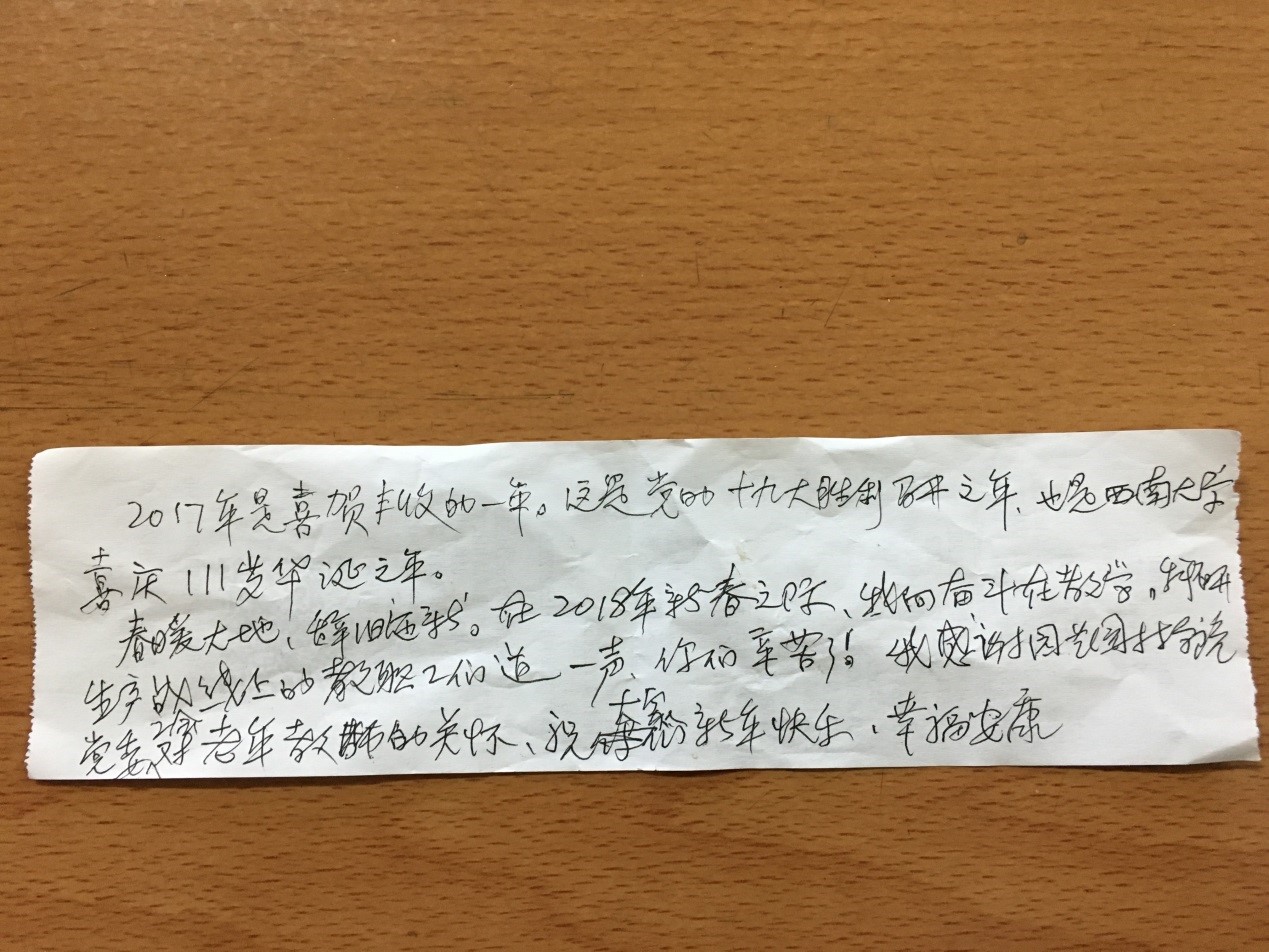 2017年是喜贺丰收的一年。这是党的十九大胜利召开之年、也是西南大学
喜庆111岁华诞之年。
春暖大地、辞旧迎新。在2018年新春之际、我向奋斗在教学,科研
生产战线上的教职工们道一声、你们辛苦了!我感谢园艺园林学院
党委,老年教师的关怀、祝大家新年快乐、幸福安康